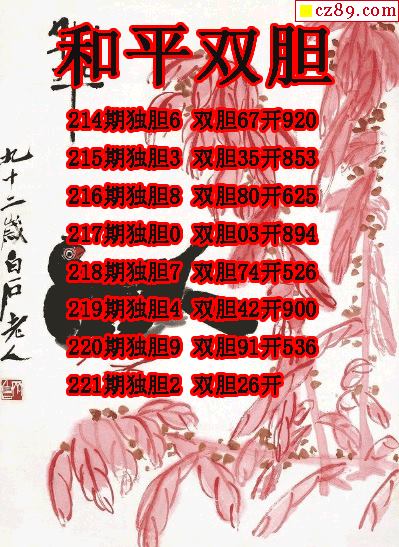 cz89.com
和平双胆
214期独胆6 双胆67开920
215期独胆3 双胆35开853
216期独胆8 双胆80开625
217期独胆0 双胆03开894
218期独胆7 双胆74开526
219期独胆4 双胆42开900
220期独胆9 双胆91开536
221期独胆2 双胆26开
九十二歲白石老人